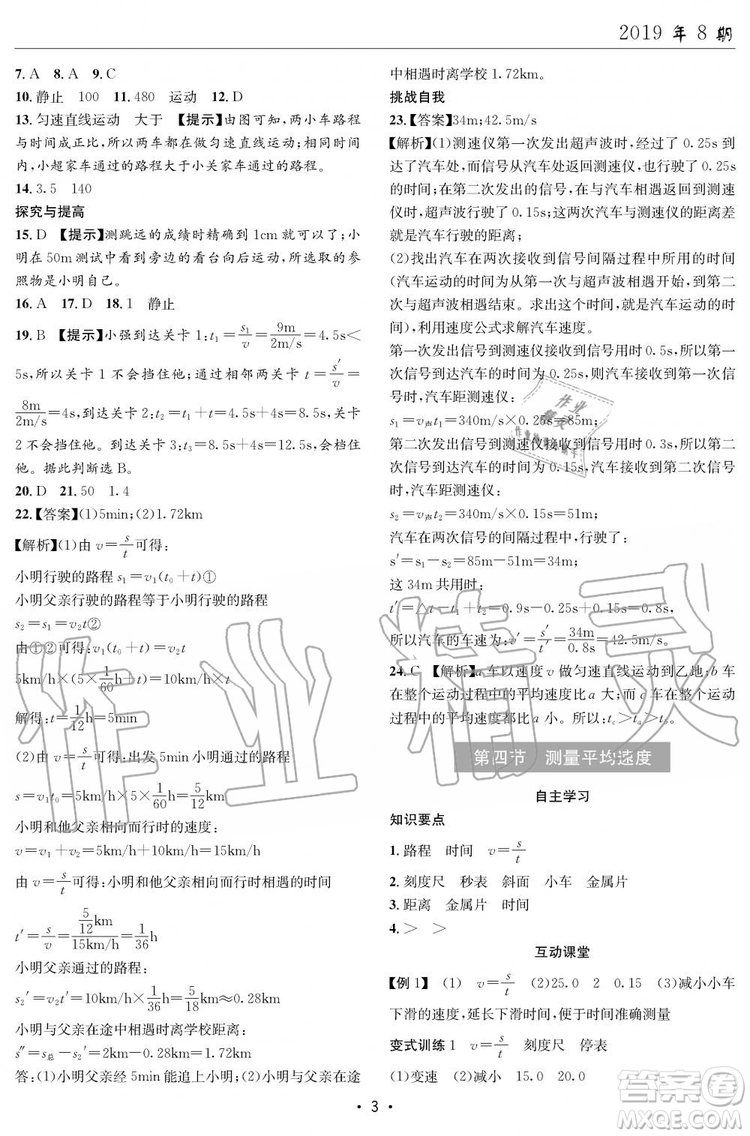 2019 年 8 期
7. A 8. A 9. C
10. 静止 100 11. 480 运动 12. D
13. 匀速直线运动 大于 【提示】由图可知,两小车路程
与时间成正比,所以两车都做匀速直线运动;相同时间
内,小超家车通过的路程大于小关家车通过的路程。
14. 3.5 140
探究与提高
15. D 【提示】测跳远的成绩时精确到1cm就可以了;小
明在50m测试中看到旁边的看台向后运动,所选的参
照物是小明自己。
16. A 17. D 18. 1 静止
19. B 【提示】小强到达关卡1:t₁=s₁/v=9m/2m/s=4.5s<
5s,所以关卡1不会挡住他;通过相邻两关卡 t=s′/v=
8m/2m/s=4s,到达关卡2:t₂=t₁+t=4.5s+4s=8.5s,关卡
2不会挡住他;到达关卡3:t₃=8.5s+4s=12.5s,会挡住
他。据此判断选B。
20. D 21. 50 1.4
22.【答案】(1)5min;(2)1.72km
【解析】(1)由v=s/t可得:
小明行驶的路程s₁=v₁(t₀+t)①
小明父亲行驶的路程等于小明行驶的路程
s₂=s₁=v₂t②
由①②可得:v₁(t₀+t)=v₂t
5km/h×(5×1/60h+t)=10km/h×t
解得:t=1/12h=5min
(2)由v=s/t可得:出发5min小明通过的路程
s=v₁t₀=5km/h×5×1/60h=5/12km
小明和他父亲相向而行时的速度:
v=v₁+v₂=5km/h+10km/h=15km/h
由v=s/t可得:小明和他父亲相向而行时相遇的时间
t′=s/v=5/12km/15km/h=1/36h
小明父亲通过的路程:
s₂′=v₂t′=10km/h×1/36h=10/36km≈0.28km
小明与父亲在途中相遇时离学校距离:
s″=s总-s₂′=2km-0.28km=1.72km
答:(1)小明父亲经5min能追上小明;(2)小明与父亲在途
中相遇时离学校1.72km。
挑战自我
23.【答案】34m;42.5m/s
【解析】(1)测速仪第一次发出超声波时,经过了0.25s到
达了汽车处,而信号从汽车处返回测速仪,也用了0.25s;
在第二次发出的信号,在与汽车相遇时,再返回测速
仪时,超声波行驶了0.15s;这两次汽车行驶的距离差
就是汽车行驶的距离;
(2)找出汽车在两次接收到信号间隔过程中所用的时间
(汽车运动的时间从第一次与超声波相遇开始,到第二次
与超声波相遇结束。求出这个时间,就是汽车运动的时
间),利用速度公式求解汽车速度。
第一次发出信号到测速仪接收到信号用时0.5s,所以第
一次信号到达汽车的时间为0.25s,所以第一次信号到达
汽车时,汽车距测速仪:
s₁=v声t₁=340m/s×0.25s=85m;
第二次发出信号到测速仪接收到信号用时0.3s,所以第
二次信号到达汽车的时间为0.15s,所以第二次信号到达
汽车时,汽车距测速仪:
s₂=v声t₂=340m/s×0.15s=51m;
汽车在两次信号的间隔过程中,行驶了:
s′=s₁-s₂=85m-51m=34m;
这34m共用时:
t′=△t-t₁+t₂=1s-0.25s+0.15s=0.8s,
所以汽车的车速为:v=s′/t′=34m/0.8s=42.5m/s。
24. C 【解析】a车以速度v做匀速直线运动到乙地;b车
在整个运动过程中的平均速度比a大;而c车在整个运动
过程中的平均速度都比a小。所以:tc>ta>tb。
第四节 测量平均速度
自主学习
知识要点
1. 路程 时间 v=s/t
2. 刻度尺 秒表 斜面 小车 金属片
3. 距离 金属片 时间
4. > >
互动课堂
【例1】 (1) v=s/t (2)25.0 2 0.15 (3)减小小车
下滑的速度,延长下滑时间,便于时间准确测量
变式训练1 v=s/t 刻度尺 停表
(1)变速 (2)减小 15.0 20.0
· 3 ·